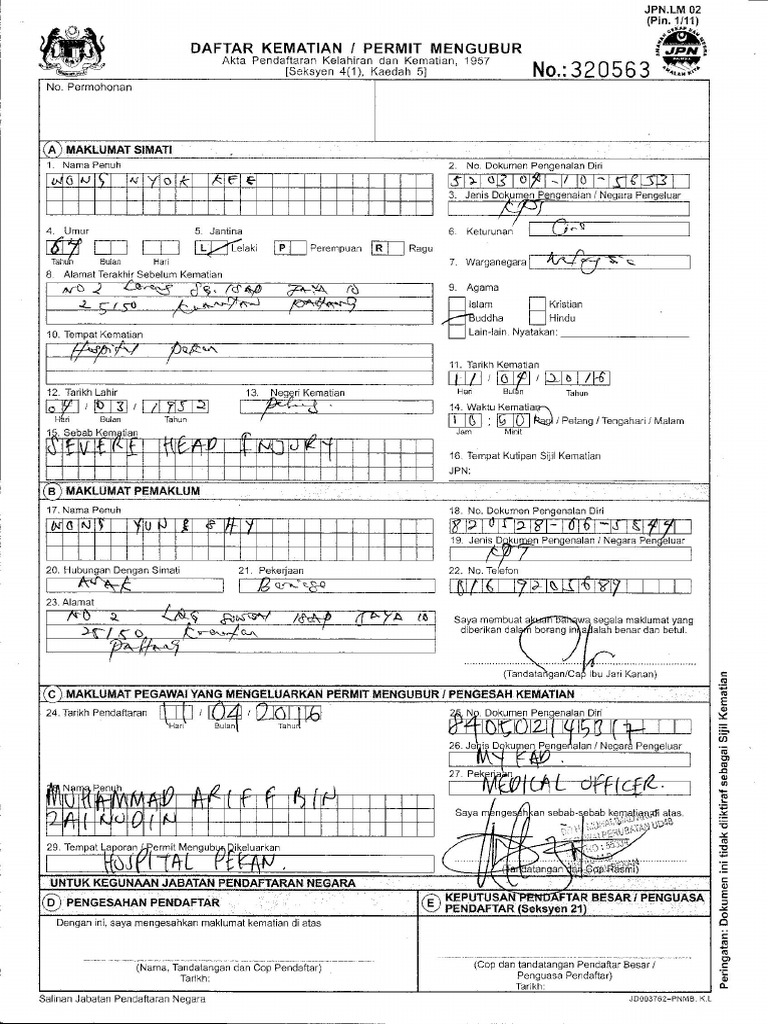 JPN.LM 02
(Pin. 1/11)
DAFTAR KEMATIAN / PERMIT MENGUBUR
Akta Pendaftaran Kelahiran dan Kematian, 1957
[Seksyen 4(1), Kaedah 5]
No.: 320563
JPN
No. Permohonan
A MAKLUMAT SIMATI
1. Nama Penuh
WONG NYOK KEE
2. No. Dokumen Pengenalan Diri
520304-10-5653
3. Jenis Dokumen Pengenalan / Negara Pengeluar
KPT
4. Umur
64
Tahun Bulan Hari
5. Jantina
L Lelaki P Perempuan R Ragu
6. Keturunan
Cina
7. Warganegara
Malaysia
8. Alamat Terakhir Sebelum Kematian
NO 2 Lorong Sg. ISAP JAYA 10
25150 Kuantan Pahang
9. Agama
Islam Kristian
Buddha Hindu
Lain-lain. Nyatakan:
10. Tempat Kematian
Hospital Pekan
11. Tarikh Kematian
11 / 04 / 2016
Hari Bulan Tahun
12. Tarikh Lahir
04 / 03 / 1952
Hari Bulan Tahun
13. Negeri Kematian
Pahang
14. Waktu Kematian
10 : 50 Pagi / Petang / Tengahari / Malam
Jam Minit
15. Sebab Kematian
SEVERE HEAD INJURY
16. Tempat Kutipan Sijil Kematian
JPN:
B MAKLUMAT PEMAKLUM
17. Nama Penuh
WONG YUN SHY
18. No. Dokumen Pengenalan Diri
820528-06-5544
19. Jenis Dokumen Pengenalan / Negara Pengeluar
KPT
20. Hubungan Dengan Simati
ANAK
21. Pekerjaan
22. No. Telefon
016 9205689
23. Alamat
NO 2 LRG SUNGAI ISAP JAYA 10
25150 Kuantan
Pahang
Saya membuat akuan bahawa segala maklumat yang
diberikan dalam borang ini adalah benar dan betul.
(Tandatangan/Cap Ibu Jari Kanan)
C MAKLUMAT PEGAWAI YANG MENGELUARKAN PERMIT MENGUBUR / PENGESAH KEMATIAN
24. Tarikh Pendaftaran
11 / 04 / 2016
Hari Bulan Tahun
25. No. Dokumen Pengenalan Diri
840502145317
26. Jenis Dokumen Pengenalan / Negara Pengeluar
MY KAD.
27. Pekerjaan
MEDICAL OFFICER.
28. Nama Penuh
MUHAMMAD ARIFF BIN
ZAINUDIN
Saya mengesahkan sebab-sebab kematian di atas.
(Tandatangan dan Cop Rasmi)
29. Tempat Laporan / Permit Mengubur Dikeluarkan
HOSPITAL PEKAN.
UNTUK KEGUNAAN JABATAN PENDAFTARAN NEGARA
D PENGESAHAN PENDAFTAR
Dengan ini, saya mengesahkan maklumat kematian di atas
(Nama, Tandatangan dan Cop Pendaftar)
Tarikh:
E KEPUTUSAN PENDAFTAR BESAR / PENGUASA
PENDAFTAR (Seksyen 21)
(Cop dan tandatangan Pendaftar Besar /
Penguasa Pendaftar)
Tarikh:
Salinan Jabatan Pendaftaran Negara
JD003762-PNMB, K.L
Peringatan: Dokumen ini tidak diiktiraf sebagai Sijil Kematian